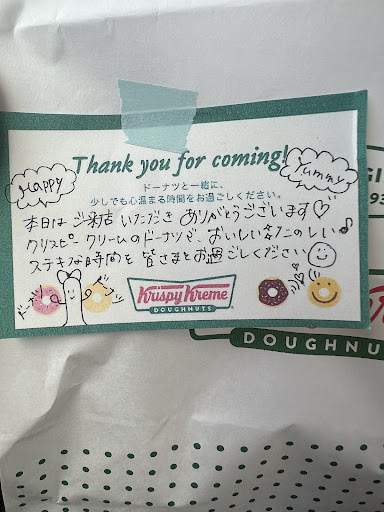 Thank you for coming!
Happy
Yummy
ドーナツと一緒に、
少しでも心温まる時間をお過ごしください。
本日は ご来店 いただき ありがとうございます♡
クリスピー クリームのドーナツで、おいしい & たのしい♪
ステキな時間を 皆さまとお過ごしください
Krispy Kreme
DOUGHNUTS
GI
93
DOUGHNU